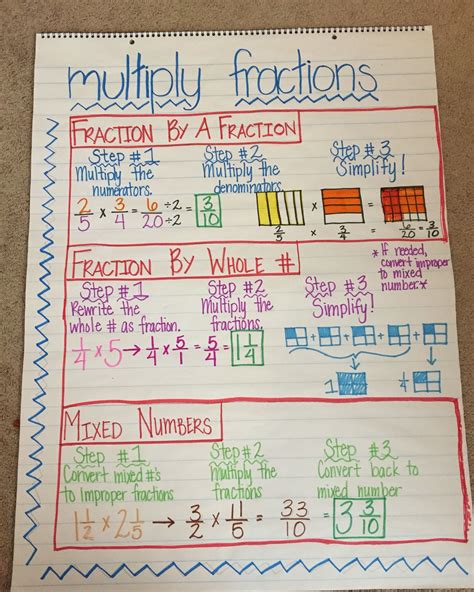 multiply fractions
FRACTION BY A FRACTION
Step #1
Multiply the
numerators.
Step #2
Multiply the
denominators.
Step #3
Simplify!
2/5 × 3/4 = 6/20 ÷2/÷2 = 3/10
2/5 × 3/4 = 6/20 = 3/10
FRACTION BY WHOLE #
*If needed,
convert improper
to mixed
number.*
Step #1
Rewrite the
whole # as fraction.
Step #2
Multiply the
fractions.
Step #3
Simplify!
1/4 × 5 → 1/4 × 5/1 = 5/4 = 1 1/4
+ + + +
1 1/4
MIXED NUMBERS
Step #1
Convert mixed #'s
to improper fractions
Step #2
Multiply the
fractions
Step #3
Convert back to
mixed number
1 1/2 × 2 1/5 → 3/2 × 11/5 = 33/10 = 3 3/10